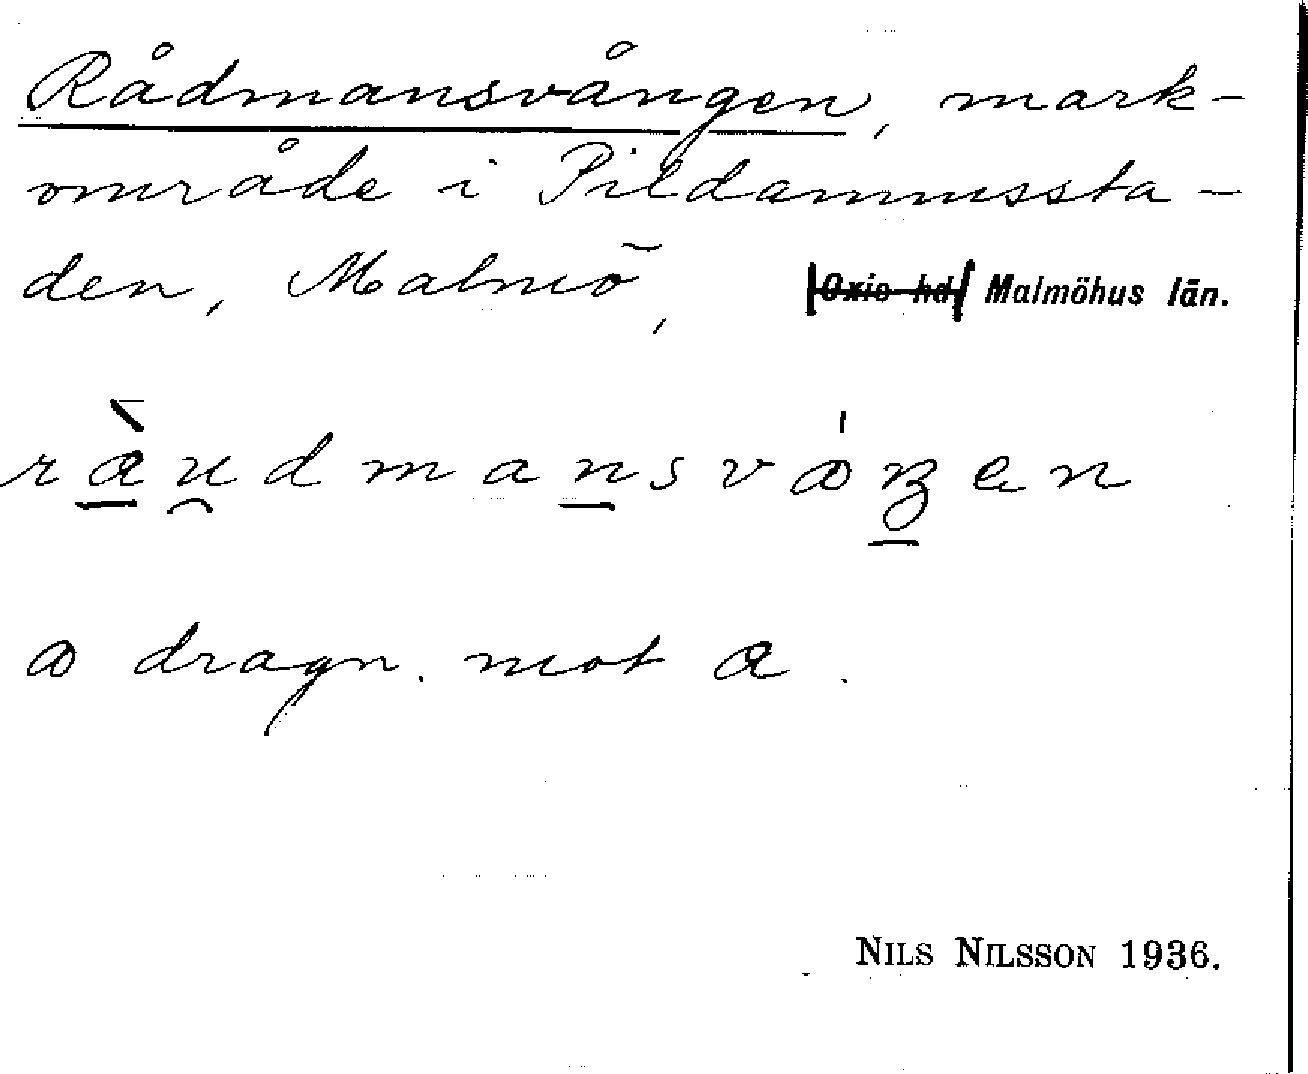 Rådmansvången, mark-
område i Pildammssta-
den, Malmö, Oxie hd Malmöhus län.
dragn. mot
NILS NILSSON 1936.